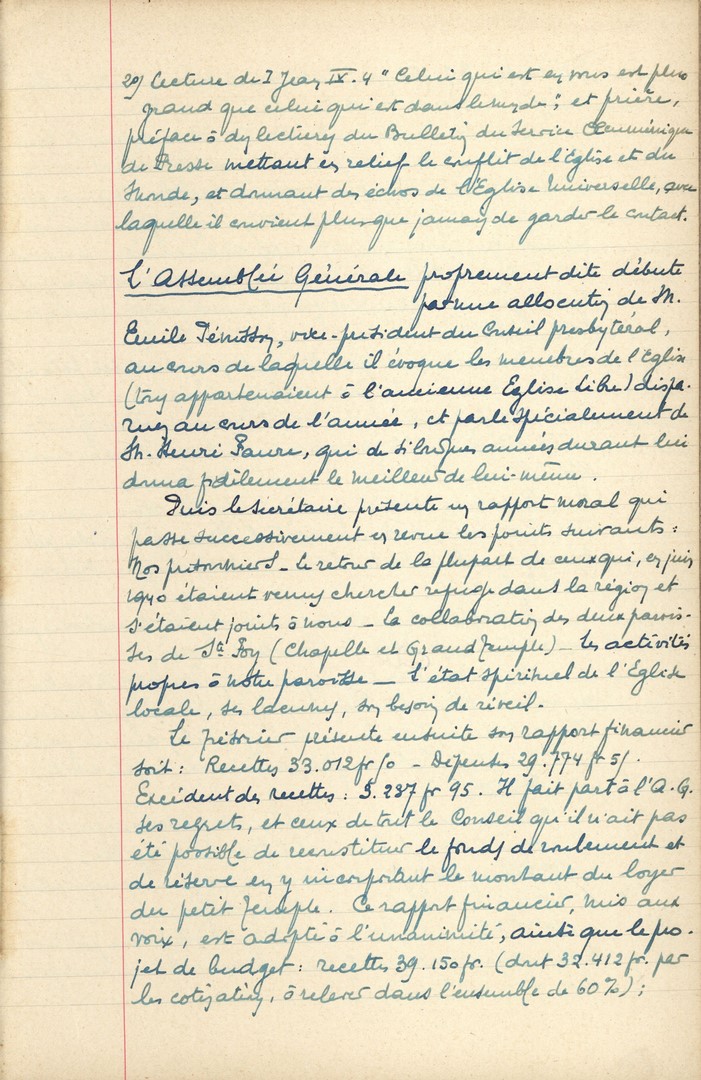 20) Lecture de I Jean IV. 4 "Celui qui est en vous est plus
grand que celui qui est dans le monde", et prière,
préface à des lectures du Bulletin du Service Œcuménique
de Presse mettant en relief le conflit de l'Eglise et du
Monde, et donnant des échos de l'Eglise Universelle, avec
laquelle il convient plus que jamais de garder le contact.
L'Assemblée Générale proprement dite débute
par une allocution de M.
Emile Pénisson, vice-président du Conseil presbytéral,
au cours de laquelle il évoque les membres de l'Eglise
(tous appartenaient à l'ancienne Eglise Libre) dispa-
rus au cours de l'année, et parle spécialement de
M. Henri Faure, qui de si longues années durant lui
donna fidèlement le meilleur de lui-même.
Puis le secrétaire présente un rapport moral qui
passe successivement en revue les points suivants :
Nos prisonniers - Le retour de la plupart de ceux qui, en juin
1940 étaient venus chercher refuge dans la région et
s'étaient joints à nous - La collaboration des deux parois-
ses de Ste Foy (Chapelle et Grand Temple) - Les activités
propres à notre paroisse - L'état spirituel de l'Eglise
locale, ses lacunes, son besoin de réveil.
Le trésorier présente ensuite son rapport financier
soit : Recettes 33.012 fr - Dépenses 29.774 fr
Excédent des recettes : 3.237 fr 95. Il fait part à l'A.G.
ses regrets, et ceux de tout le Conseil qu'il n'ait pas
été possible de reconstituer le fonds de roulement et
de réserve en y incorporant le montant du loyer
du petit Temple. Ce rapport financier, mis aux
voix, est adopté à l'unanimité, ainsi que le pro-
jet de budget : recettes 39.150 fr. (dont 32.412 fr. par
les cotisations, à relever dans l'ensemble de 60%) ;